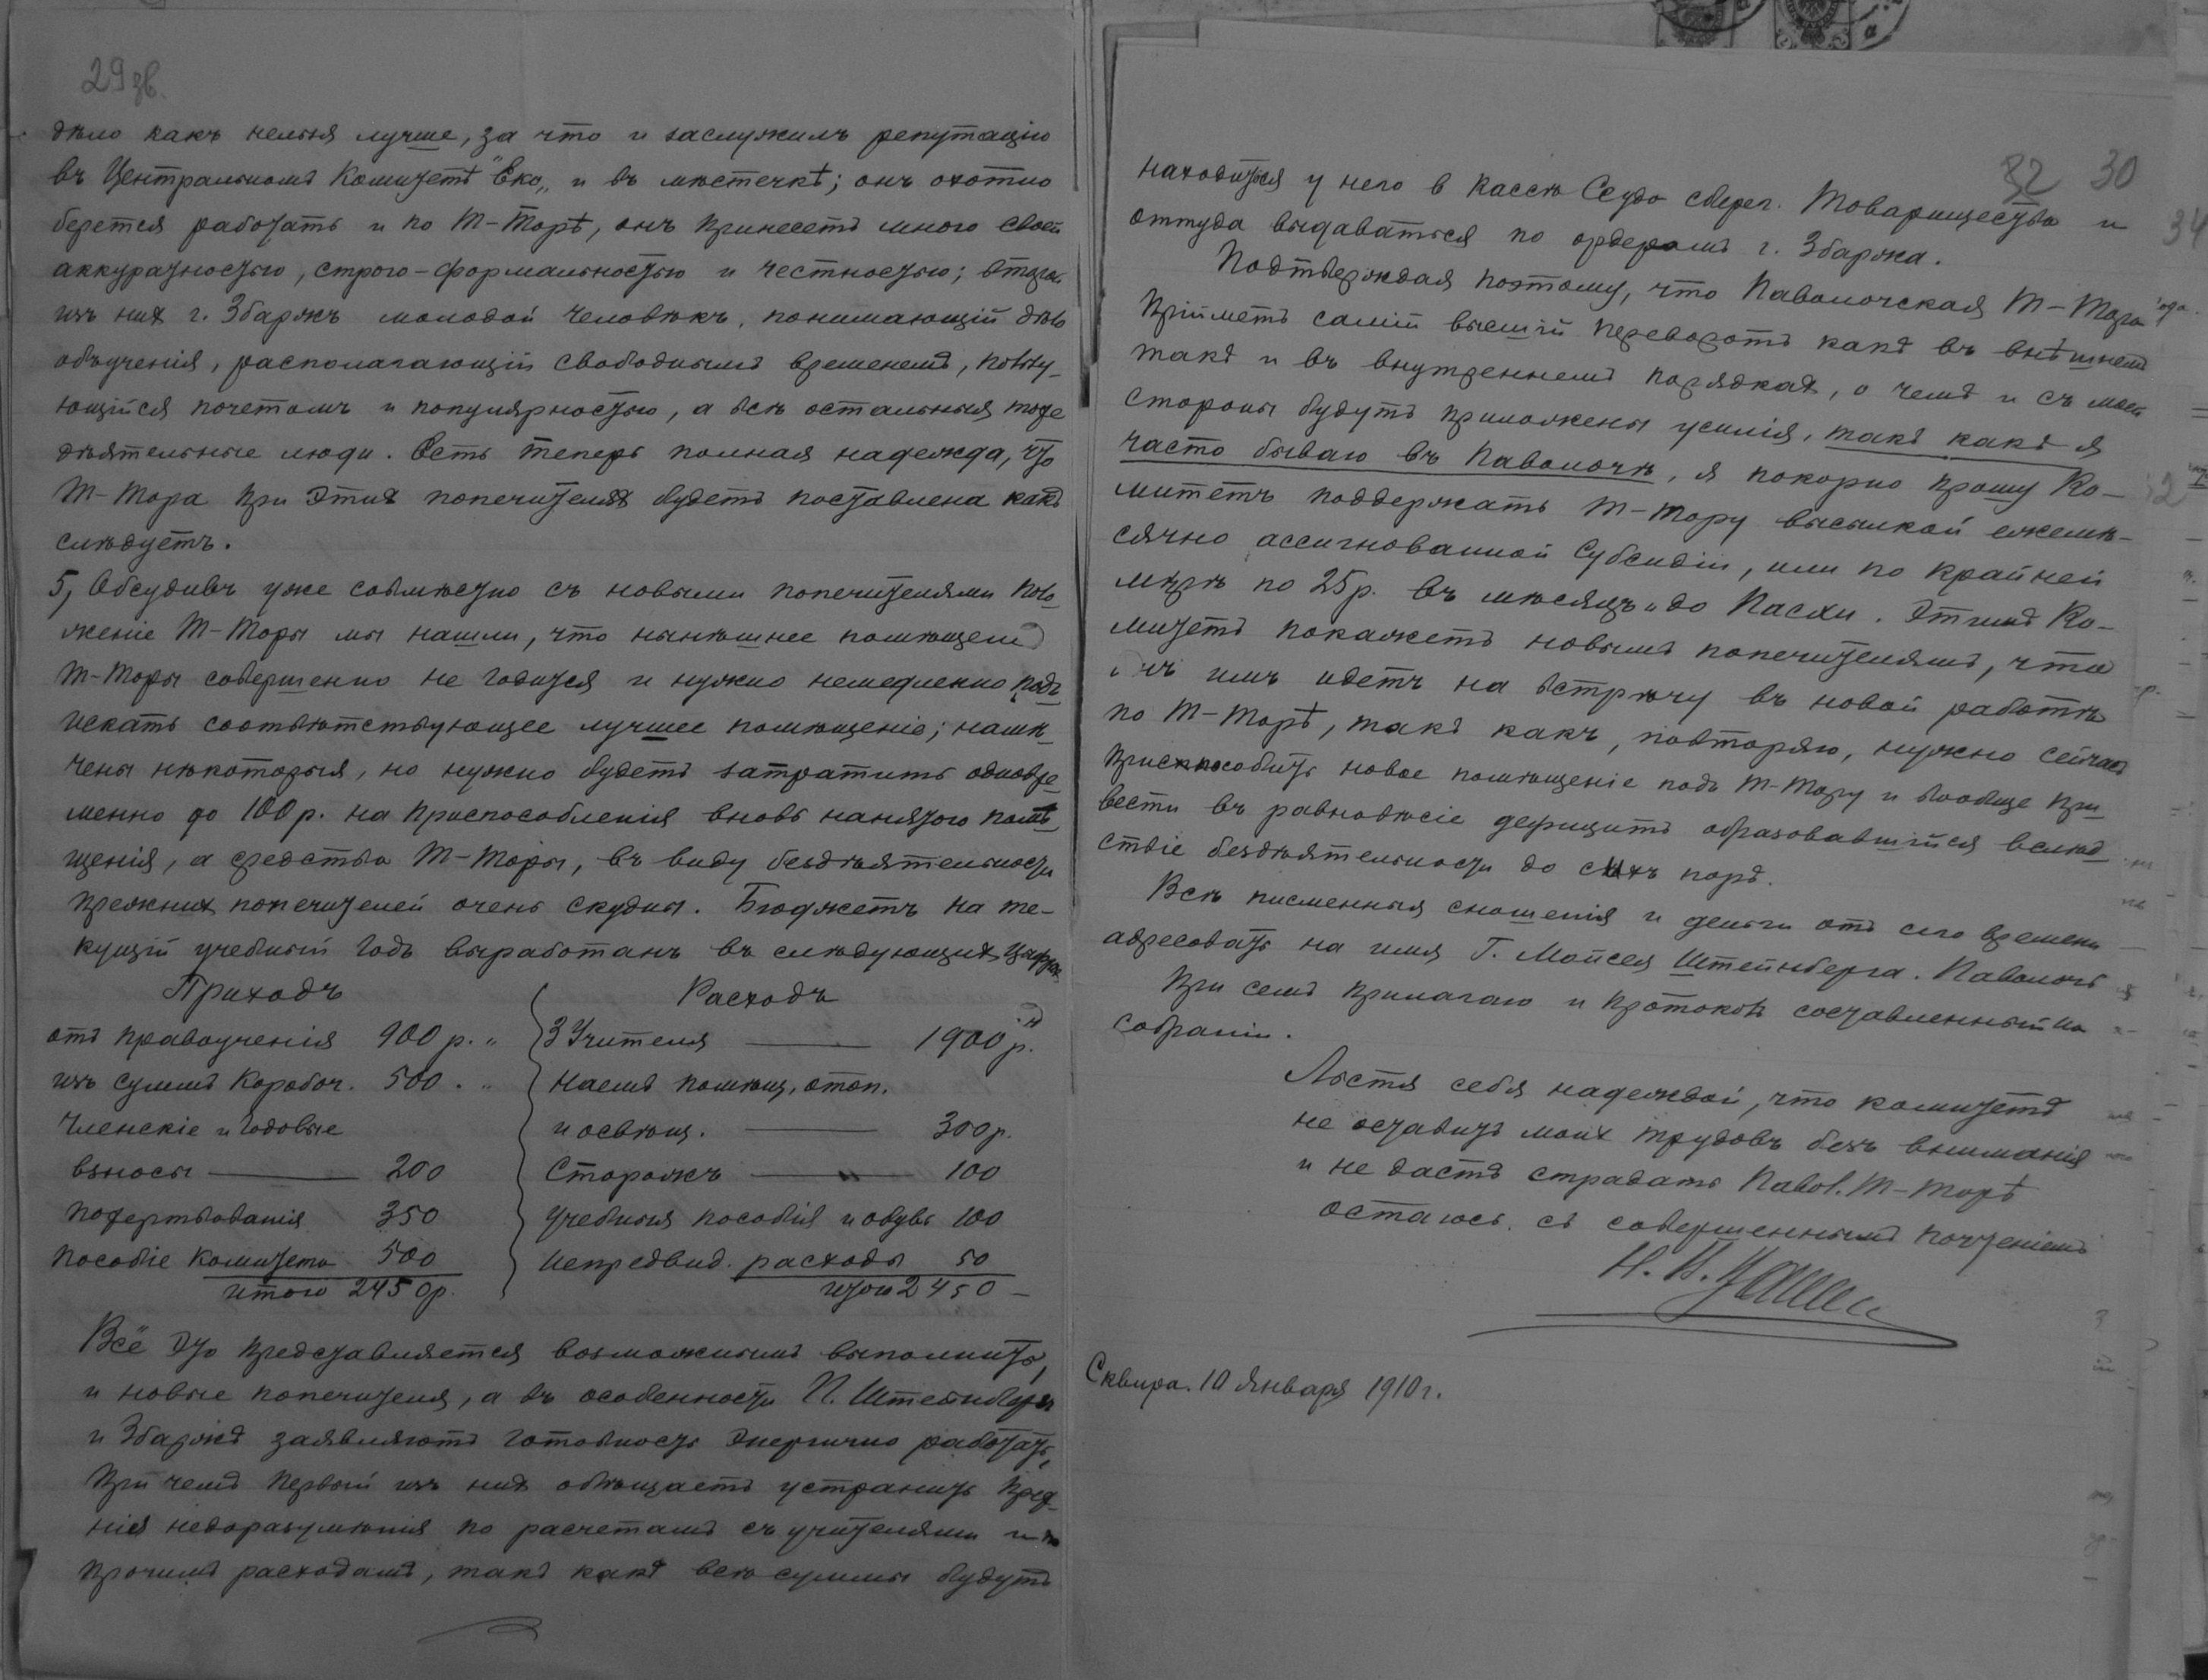 29 зв.
дѣло какъ нельзя лучше, за что и заслужилъ репутацію
въ Центральномъ Комитетѣ "Еко„ и въ мѣстечкѣ; онъ охотно
берется работать и по Т-Торѣ, онъ принесетъ много своей
аккуратностью, строго-формальностью и честностью; второй
изъ них г. Збаржъ молодой человѣкъ, понимающій дѣло
обученія, располагающій свободнымъ временемъ, пользу-
ющійся почетомъ и популярностью, а всѣ остальныя тоже
дѣятельные люди. Есть теперь полная надежда, что
Т-Тора при этих попечителях будетъ поставлена какъ
слѣдуетъ.
5, Обсудивъ уже совмѣстно съ новыми попечителями поло-
женіе Т-Торы мы нашли, что нынѣшнее помѣщеніе
Т-Торы совершенно не годится и нужно немедленно подъ
искать соотвѣтствующее лучшее помѣщеніе; намѣ-
чены нѣкоторыя, но нужно будетъ затратить одновре-
менно до 100 р. на приспособленія вновь нанятого помѣ-
щенія, а средства Т-Торы, въ виду бездѣятельности
прежних попечителей очень скудны. Бюджетъ на те-
кущій учебный годъ выработанъ въ слѣдующих цифрах
Приходъ Расходъ
отъ правоученія 900 р. „ 3 Учителя — 1900 р.
изъ суммъ Коробоч. 500 . „ Наемъ помѣщ, отоп.
Членскіе и годовые и освѣщ. — 300 р.
взносы — 200 Сторожъ — „ — 100
пожертвованія 350 Учебныя пособія и обувь 100
пособіе Комитета 500 Непредвид. расходы 50
итого 2450 р. итого 2450 —
Всё это представляется возможнымъ выполнить,
и новые попечителя, а въ особенности П. Штейнбергъ
и Збаржъ заявляютъ готовность энергично работать,
при чемъ первый изъ них обѣщаетъ устранить преж-
нія недоразумѣнія по расчетамъ съ учителями и по
прочимъ расходамъ, такъ какъ всѣ суммы будутъ
32 30
34
находиться у него в кассѣ Ссудо сберег. Товарищества и
оттуда выдаваться по ордерамъ г. Збаржа.
Подтверждая поэтому, что Паволочская Т-Тора
прійметъ самій высшій переворотъ какъ въ внѣшнемъ
такъ и въ внутреннемъ порядках, о чемъ и съ моей
стороны будутъ приложены усилія, такъ какъ я
часто бываю въ Паволочѣ, я покорно прошу Ко-
митетъ поддержать Т-Тору высылкой ежемѣ-
сячно ассигнованной Субсидіи, или по крайней
мѣрѣ по 25 р. въ мѣсяцъ до Пасхи. Этимъ Ко-
митетъ покажетъ новымъ попечителямъ, что
онъ имъ идетъ на встрѣчу въ новой работѣ
по Т-Торѣ, такъ какъ, повторяю, нужно сейчасъ
приспособить новое помѣщеніе подъ Т-Тору и вообще при
вести въ равновѣсіе дефицитъ образовавшійся вслѣд-
ствіе бездѣятельности до сихъ поръ.
Всѣ писменныя сношенія и деньги отъ сего времени
адресовать на имя Г. Мойсея Штейнберга. Паволочь
При семъ прилагаю и протоколъ составленный на
собраніи.
Льстя себя надеждой, что комитетъ
не оставитъ моих трудовъ безъ вниманія
и не дастъ страдать Павол. Т-Торѣ
остаюсь съ совершеннымъ почтеніемъ
Сквира. 10 Января 1910 г.